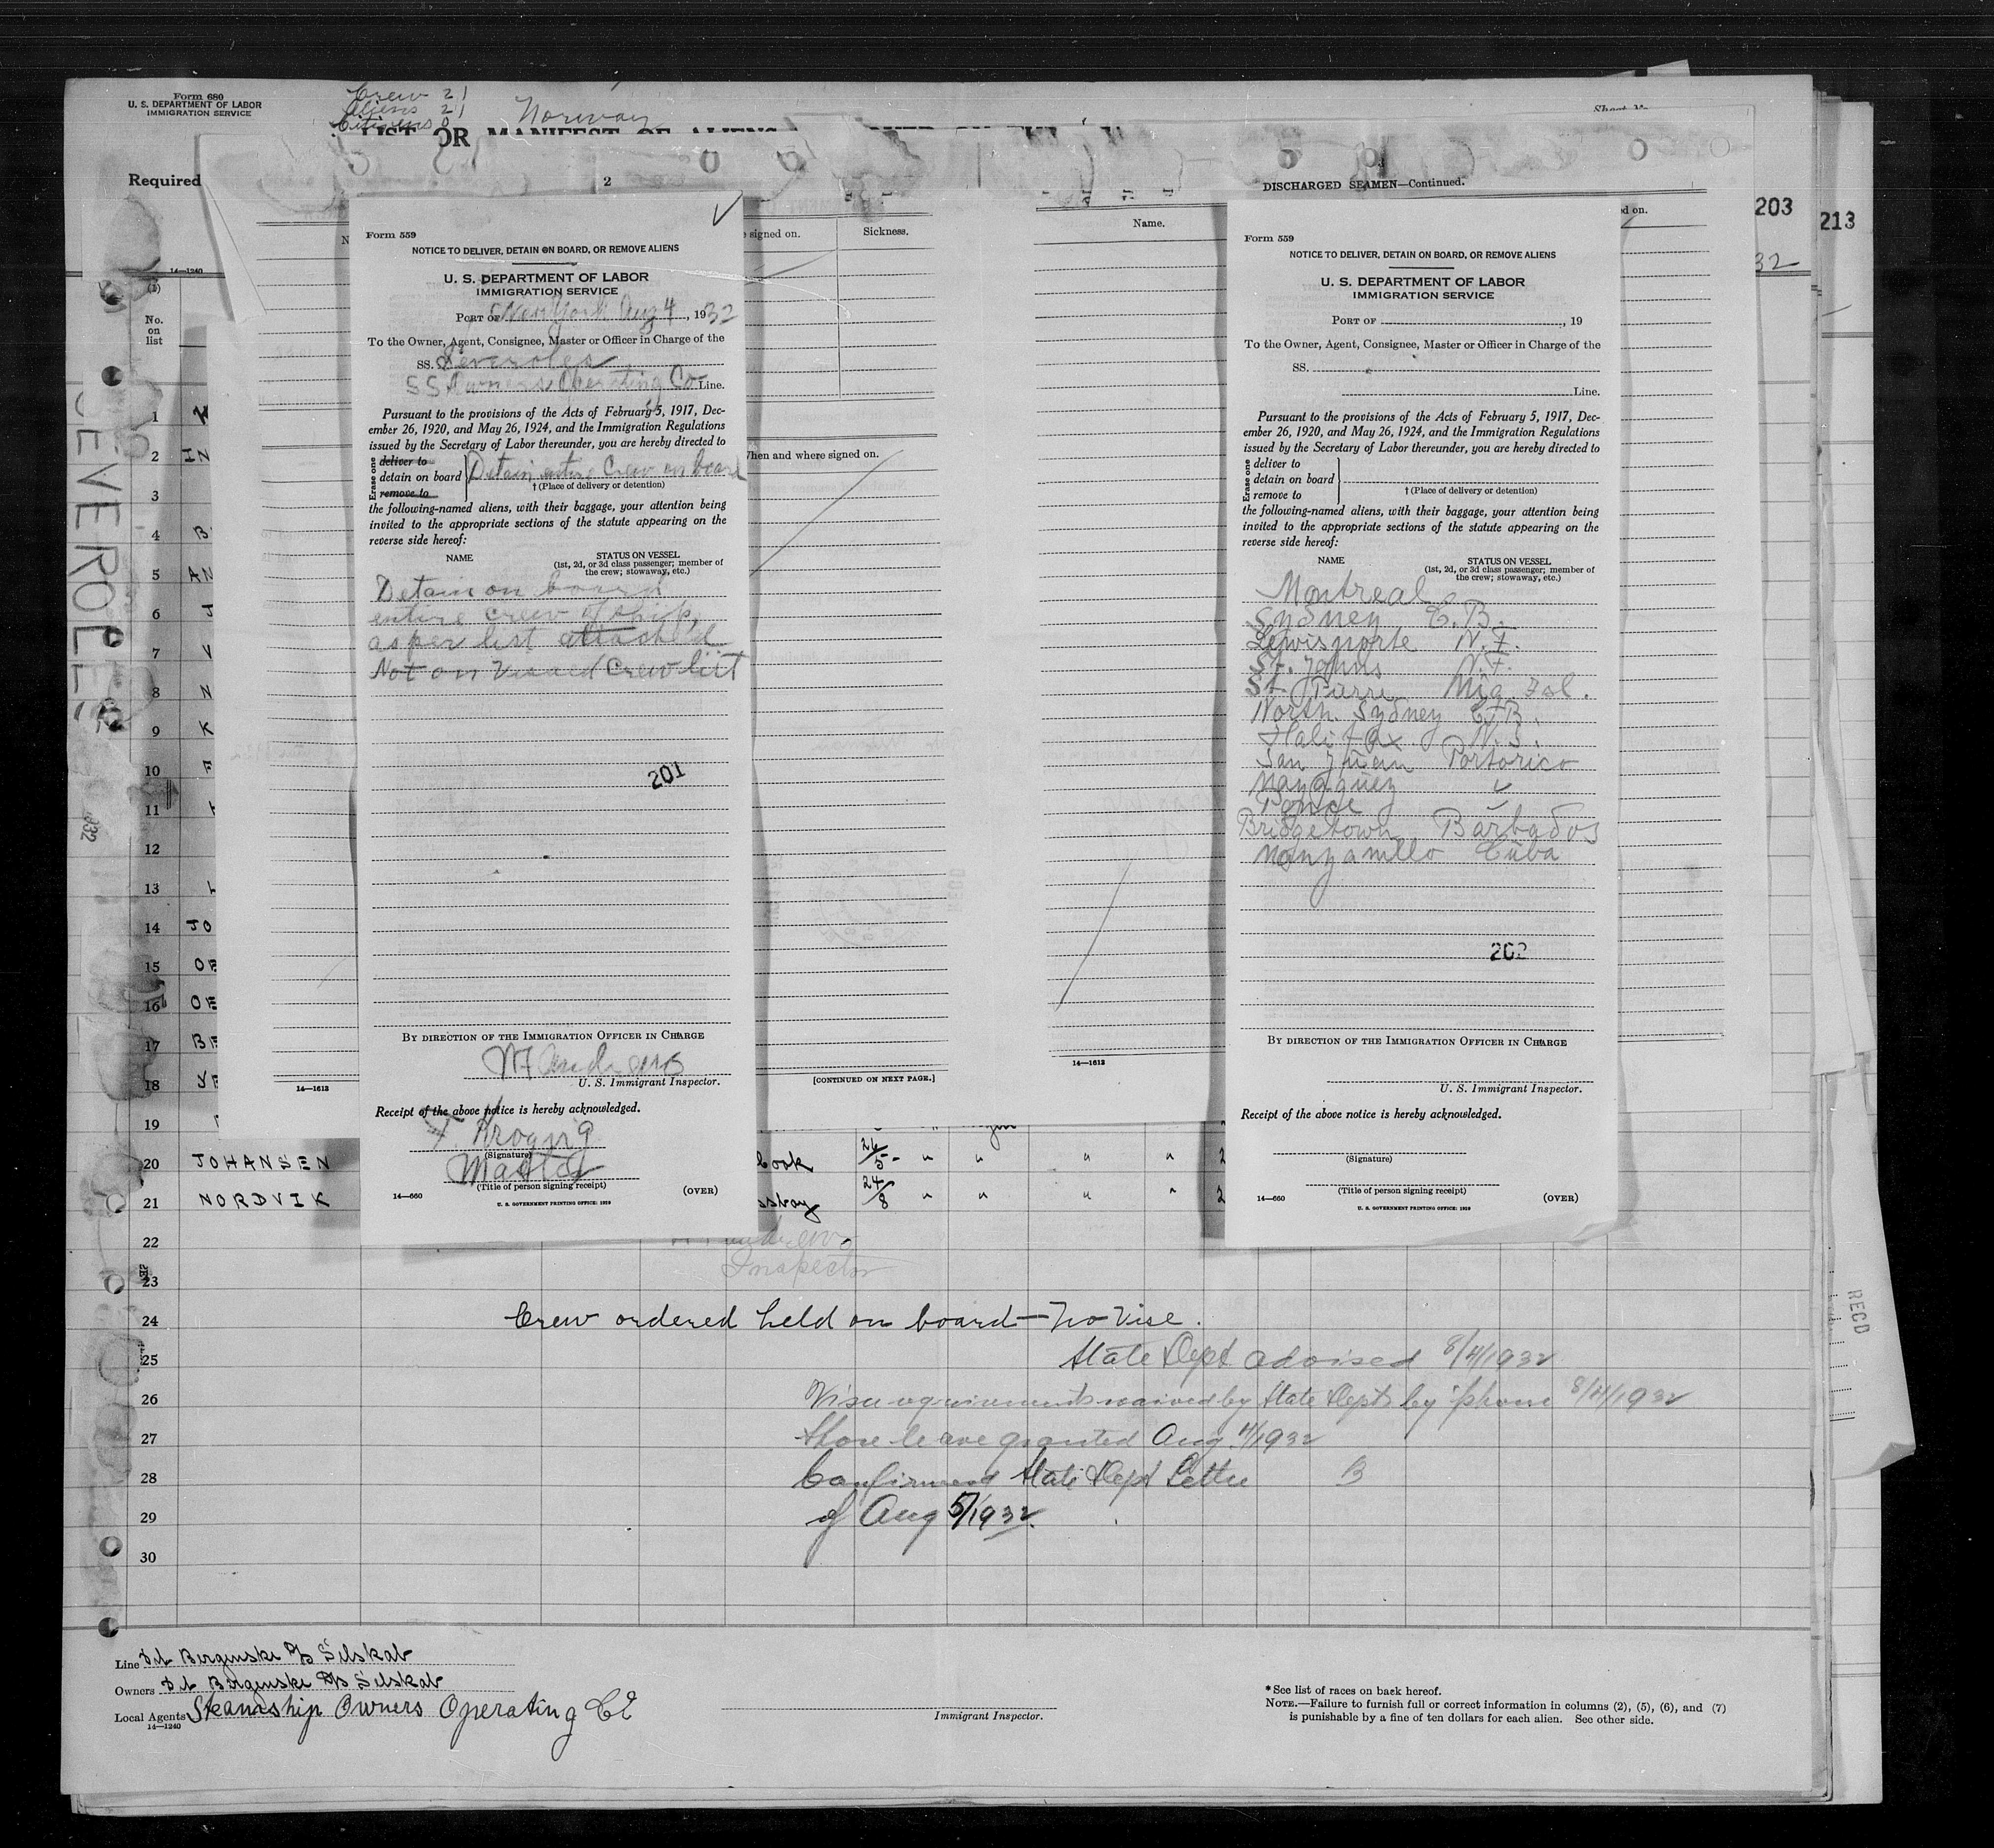 Form 680
U. S. DEPARTMENT OF LABOR
IMMIGRATION SERVICE
Crew 21
Aliens 21
Citizens 0
Norway
LIST OR MANIFEST OF ALIENS
Required
14—1240
(1)
No.
on
list
DEVEROLES
1
2
3
4
5
6
7
8
9
10
11
12
13
14
15
16
17
18
19
20 JOHANSEN
21 NORDVIK
22
23
24
25
26
27
28
29
30
2
signed on.
Sickness.
When and where signed on.
[CONTINUED ON NEXT PAGE.]
14—1613
Form 559
NOTICE TO DELIVER, DETAIN ON BOARD, OR REMOVE ALIENS
U. S. DEPARTMENT OF LABOR
IMMIGRATION SERVICE
PORT OF New York Aug 4, 1932
To the Owner, Agent, Consignee, Master or Officer in Charge of the
SS.
SS Owners Operating Co Line.
Pursuant to the provisions of the Acts of February 5, 1917, Dec-
ember 26, 1920, and May 26, 1924, and the Immigration Regulations
issued by the Secretary of Labor thereunder, you are hereby directed to
Erase one
deliver to
detain on board
remove to
Detain entire Crew on board
† (Place of delivery or detention)
the following-named aliens, with their baggage, your attention being
invited to the appropriate sections of the statute appearing on the
reverse side hereof:
NAME STATUS ON VESSEL
(1st, 2d, or 3d class passenger; member of
the crew; stowaway, etc.)
Detain on board
entire crew of ship,
as per list attach'd
Not on Visaed Crew list
201
BY DIRECTION OF THE IMMIGRATION OFFICER IN CHARGE
U. S. Immigrant Inspector.
Receipt of the above notice is hereby acknowledged.
(Signature)
Master
(Title of person signing receipt)
14—660
(OVER)
U. S. GOVERNMENT PRINTING OFFICE: 1929
DISCHARGED SEAMEN—Continued.
Name.
14—1613
Form 559
NOTICE TO DELIVER, DETAIN ON BOARD, OR REMOVE ALIENS
U. S. DEPARTMENT OF LABOR
IMMIGRATION SERVICE
PORT OF , 19
To the Owner, Agent, Consignee, Master or Officer in Charge of the
SS.
Line.
Pursuant to the provisions of the Acts of February 5, 1917, Dec-
ember 26, 1920, and May 26, 1924, and the Immigration Regulations
issued by the Secretary of Labor thereunder, you are hereby directed to
Erase one
deliver to
detain on board
remove to
† (Place of delivery or detention)
the following-named aliens, with their baggage, your attention being
invited to the appropriate sections of the statute appearing on the
reverse side hereof:
NAME STATUS ON VESSEL
(1st, 2d, or 3d class passenger; member of
the crew; stowaway, etc.)
Montreal
Sydney C.B.
Lewisporte N.F.
St. Johns N.F.
St. Pierre Miq. Isl.
North Sydney C.B.
Halifax N.S.
San Juan Portorico
Mayaguez
Ponce
Bridgetown Barbados
Manzanillo Cuba
202
BY DIRECTION OF THE IMMIGRATION OFFICER IN CHARGE
U. S. Immigrant Inspector.
Receipt of the above notice is hereby acknowledged.
(Signature)
(Title of person signing receipt)
14—660
(OVER)
U. S. GOVERNMENT PRINTING OFFICE: 1929
203
213
RECD
Inspector
Crew ordered held on board—No Vise.
State Dept advised 8/4/1932
Visa requirements waived by State Dept by 'phone 8/4/1932
Shore leave granted Aug. 4/1932
Confirmed State Dept Letter B
of Aug 5/1932.
Line Det Bergenske D/S Selskab
Owners Det Bergenske D/S Selskab
Local Agents Steamship Owners Operating Co
14—1240
Immigrant Inspector.
* See list of races on back hereof.
NOTE.—Failure to furnish full or correct information in columns (2), (5), (6), and (7)
is punishable by a fine of ten dollars for each alien. See other side.